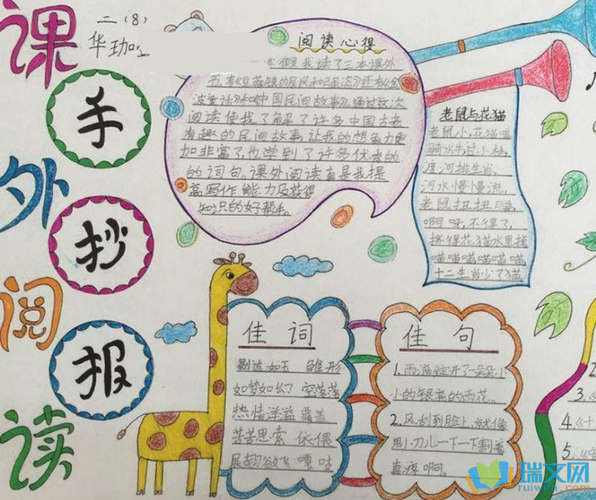 课外阅读
手抄报
二（8）
华珈
阅读心得
假我读了三本课外
书,
《中国民间故事》,通过数次
阅读使我了解了许多中国古老
有趣的民间故事,让我的想象力更
加非富了,也学到了许多优秀的
的词句。课外阅读真是我提
高写作能力及获得
知识的好帮手。
老鼠与花猫
老鼠小,花猫喵
骑水牛过小林,
渡河排生肖,
河水慢慢流,
老鼠扭扭
啊呀,不得了,
挤得花猫水里掉
喵喵喵喵喵喵
十二生肖少了猫
佳词
雏形
如梦如幻 空荡荡
热情洋溢 覆盖
苦苦思索 依偎
展翅欲飞
佳句
1.雨滴绽开了一朵朵小
小的银亮的雨花。
2.风刮到脸上,就像
用小刀儿一下一下割着
直疼啊。
2.
3.
4.
5.
瑞文网
ruiwen